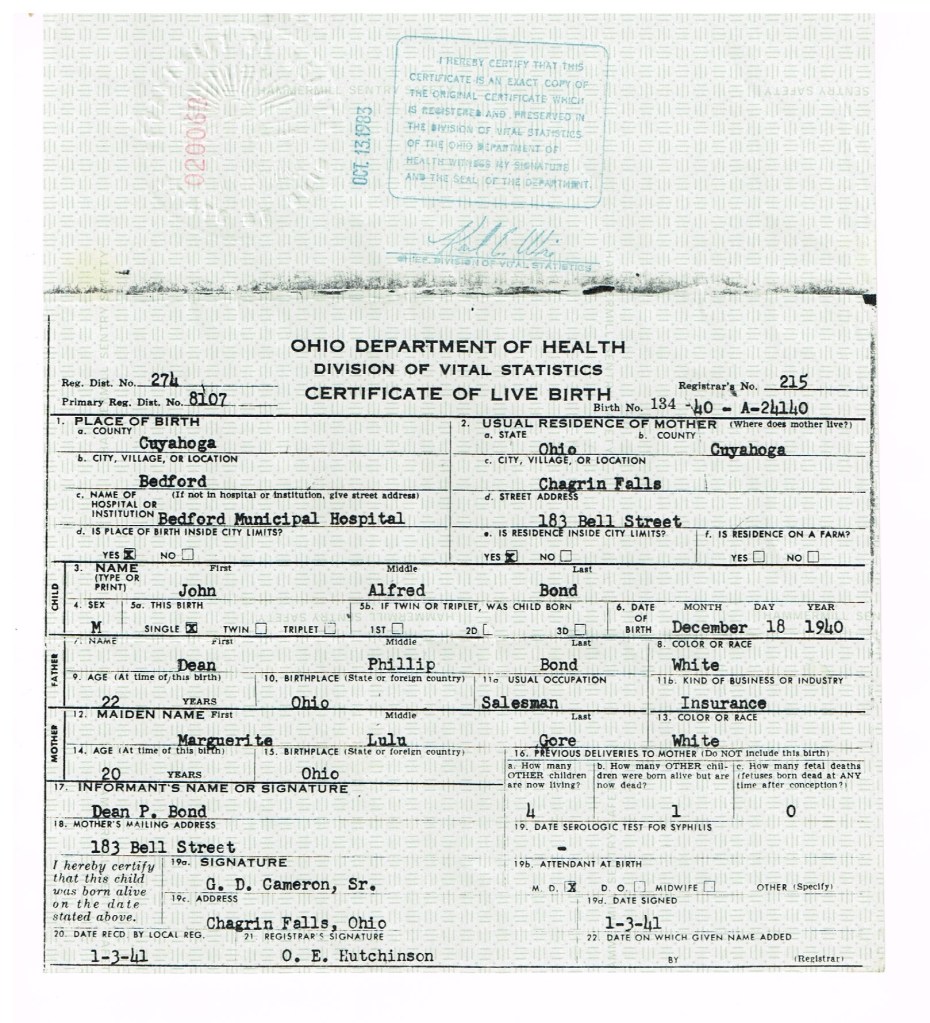 HAMMERMILL SENTRY
SENTRY SAFETY
OCT. 13. 1983
I HEREBY CERTIFY THAT THIS
CERTIFICATE IS AN EXACT COPY OF
THE ORIGINAL CERTIFICATE WHICH
IS REGISTERED AND PRESERVED IN
THE DIVISION OF VITAL STATISTICS
OF THE OHIO DEPARTMENT OF
HEALTH WITNESS MY SIGNATURE
AND THE SEAL OF THE DEPARTMENT.
CHIEF, DIVISION OF VITAL STATISTICS
OHIO DEPARTMENT OF HEALTH
DIVISION OF VITAL STATISTICS
CERTIFICATE OF LIVE BIRTH
Reg. Dist. No. 274
Primary Reg. Dist. No. 8107
Registrar's No. 215
Birth No. 134 -40 - A-24140
1. PLACE OF BIRTH
a. COUNTY
Cuyahoga
b. CITY, VILLAGE, OR LOCATION
Bedford
c. NAME OF (If not in hospital or institution, give street address)
HOSPITAL OR
INSTITUTION Bedford Municipal Hospital
d. IS PLACE OF BIRTH INSIDE CITY LIMITS?
YES X NO
2. USUAL RESIDENCE OF MOTHER (Where does mother live?)
a. STATE b. COUNTY
Ohio Cuyahoga
c. CITY, VILLAGE, OR LOCATION
Chagrin Falls
d. STREET ADDRESS
183 Bell Street
e. IS RESIDENCE INSIDE CITY LIMITS? f. IS RESIDENCE ON A FARM?
YES X NO YES NO
CHILD
3. NAME First Middle Last
(TYPE OR
PRINT) John Alfred Bond
4. SEX 5a. THIS BIRTH 5b. IF TWIN OR TRIPLET, WAS CHILD BORN 6. DATE MONTH DAY YEAR
OF
M SINGLE X TWIN TRIPLET 1ST 2D 3D BIRTH December 18 1940
FATHER
7. NAME First Middle Last 8. COLOR OR RACE
Dean Phillip Bond White
9. AGE (At time of this birth) 10. BIRTHPLACE (State or foreign country) 11a. USUAL OCCUPATION 11b. KIND OF BUSINESS OR INDUSTRY
22 YEARS Ohio Salesman Insurance
MOTHER
12. MAIDEN NAME First Middle Last 13. COLOR OR RACE
Marguerite Lulu Gore White
14. AGE (At time of this birth) 15. BIRTHPLACE (State or foreign country)
20 YEARS Ohio
16. PREVIOUS DELIVERIES TO MOTHER (Do NOT include this birth)
a. How many
OTHER children
are now living?
4
b. How many OTHER chil-
dren were born alive but are
now dead?
1
c. How many fetal deaths
(fetuses born dead at ANY
time after conception?)
0
17. INFORMANT'S NAME OR SIGNATURE
Dean P. Bond
18. MOTHER'S MAILING ADDRESS
183 Bell Street
19. DATE SEROLOGIC TEST FOR SYPHILIS
-
I hereby certify
that this child
was born alive
on the date
stated above.
19a. SIGNATURE
G. D. Cameron, Sr.
19b. ATTENDANT AT BIRTH
M. D. X D O. MIDWIFE OTHER (Specify)
19c. ADDRESS
Chagrin Falls, Ohio
19d. DATE SIGNED
1-3-41
20. DATE RECD. BY LOCAL REG. 21 REGISTRAR'S SIGNATURE 22. DATE ON WHICH GIVEN NAME ADDED
1-3-41 O. E. Hutchinson
BY (Registrar)